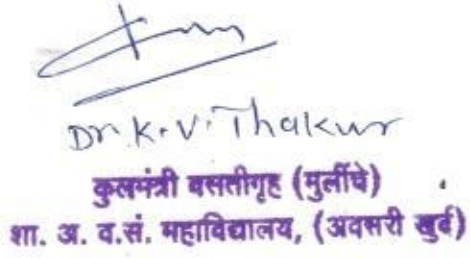 Dr. K. V. Thakur
कुलमंत्री वसतीगृह (मुलींचे)
शा. अ. व.सं. महाविद्यालय, (अवसरी खुर्द)